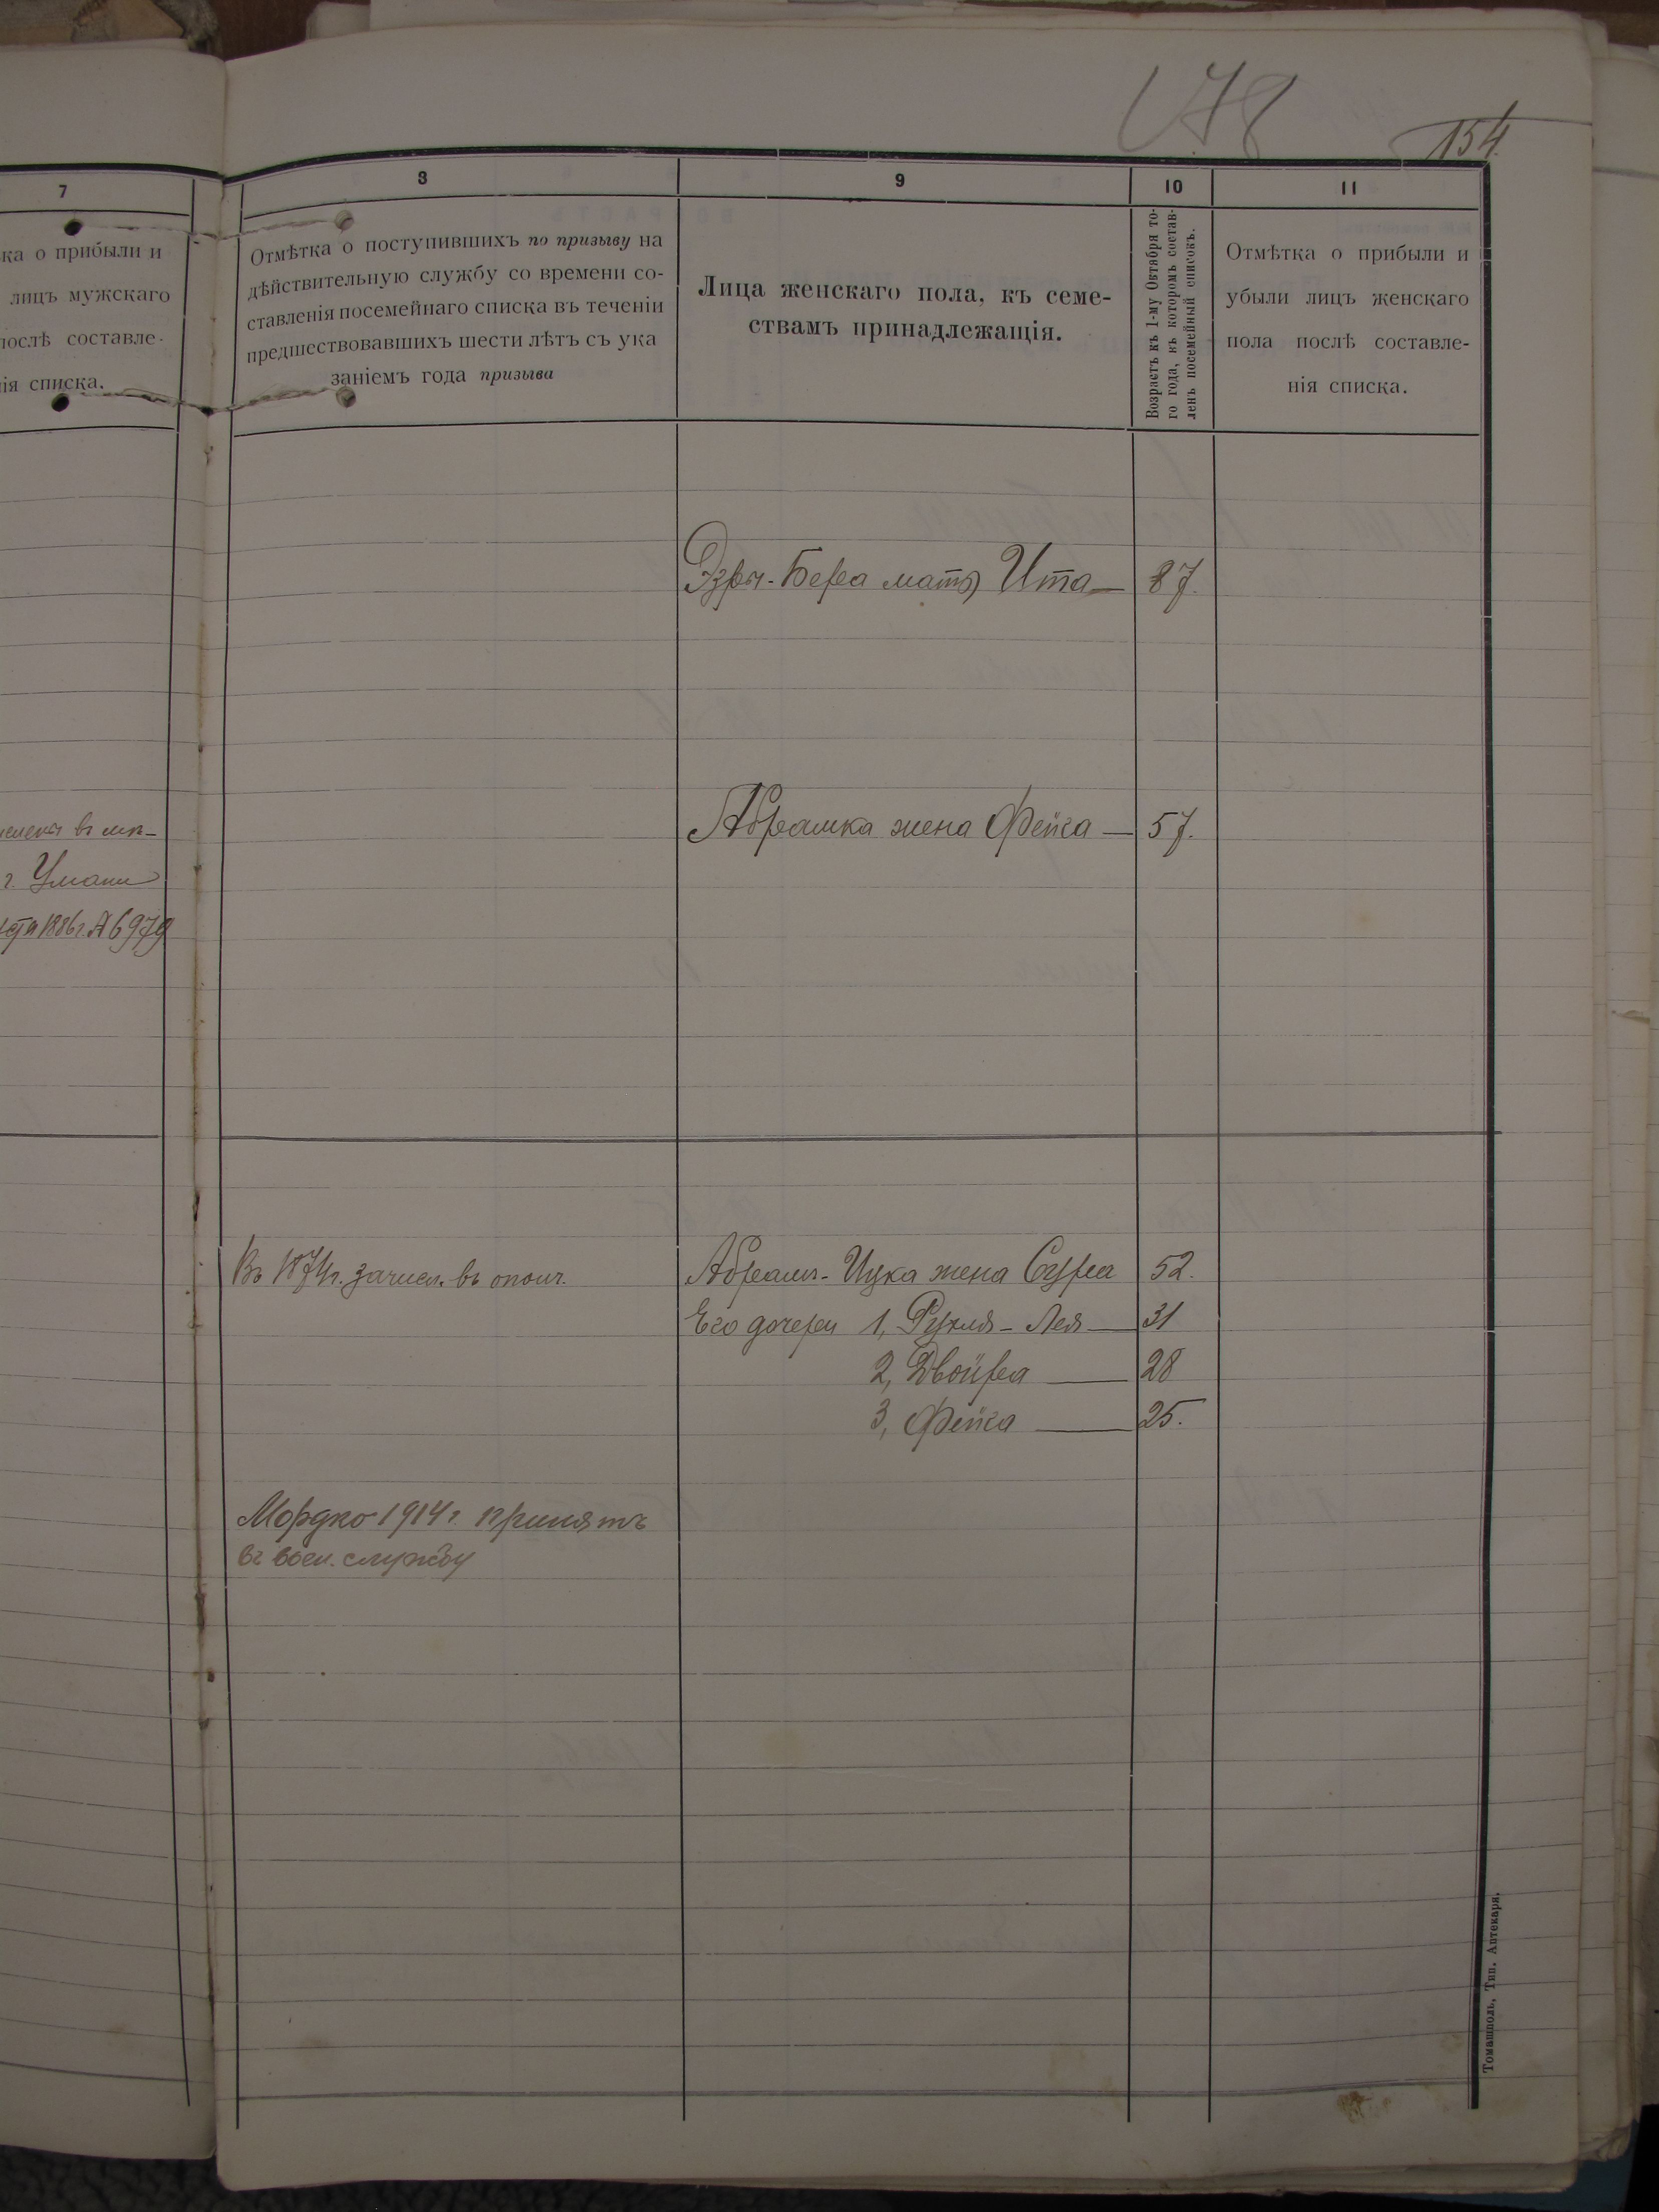 178
154.
7
ка о прибыли и
лицъ мужскаго
послѣ составле-
нія списка.
г. Умани
1886 г. № 6979
8
Отмѣтка о поступившихъ по призыву на
дѣйствительную службу со времени со-
ставленія посемейнаго списка въ теченіи
предшествовавшихъ шести лѣтъ съ ука
заніемъ года призыва
Въ 1874 г. зачисл. въ ополч.
Мордко 1914 г. принятъ
въ воен. службу
9
Лица женскаго пола, къ семе-
ствамъ принадлежащія.
Бера мать Ита —
Абрамка жена Фейга —
Абрамъ-Ицка жена Сура
Его дочери 1, Рухля-Лея —
2, Двойра —
3, Фейга —
10
Возрастъ къ 1-му Октября то-
го года, въ которомъ состав-
ленъ посемейный списокъ.
87.
57.
52.
31
28
25.
11
Отмѣтка о прибыли и
убыли лицъ женскаго
пола послѣ составле-
нія списка.
Томашполь, Тип. Аптекаря.